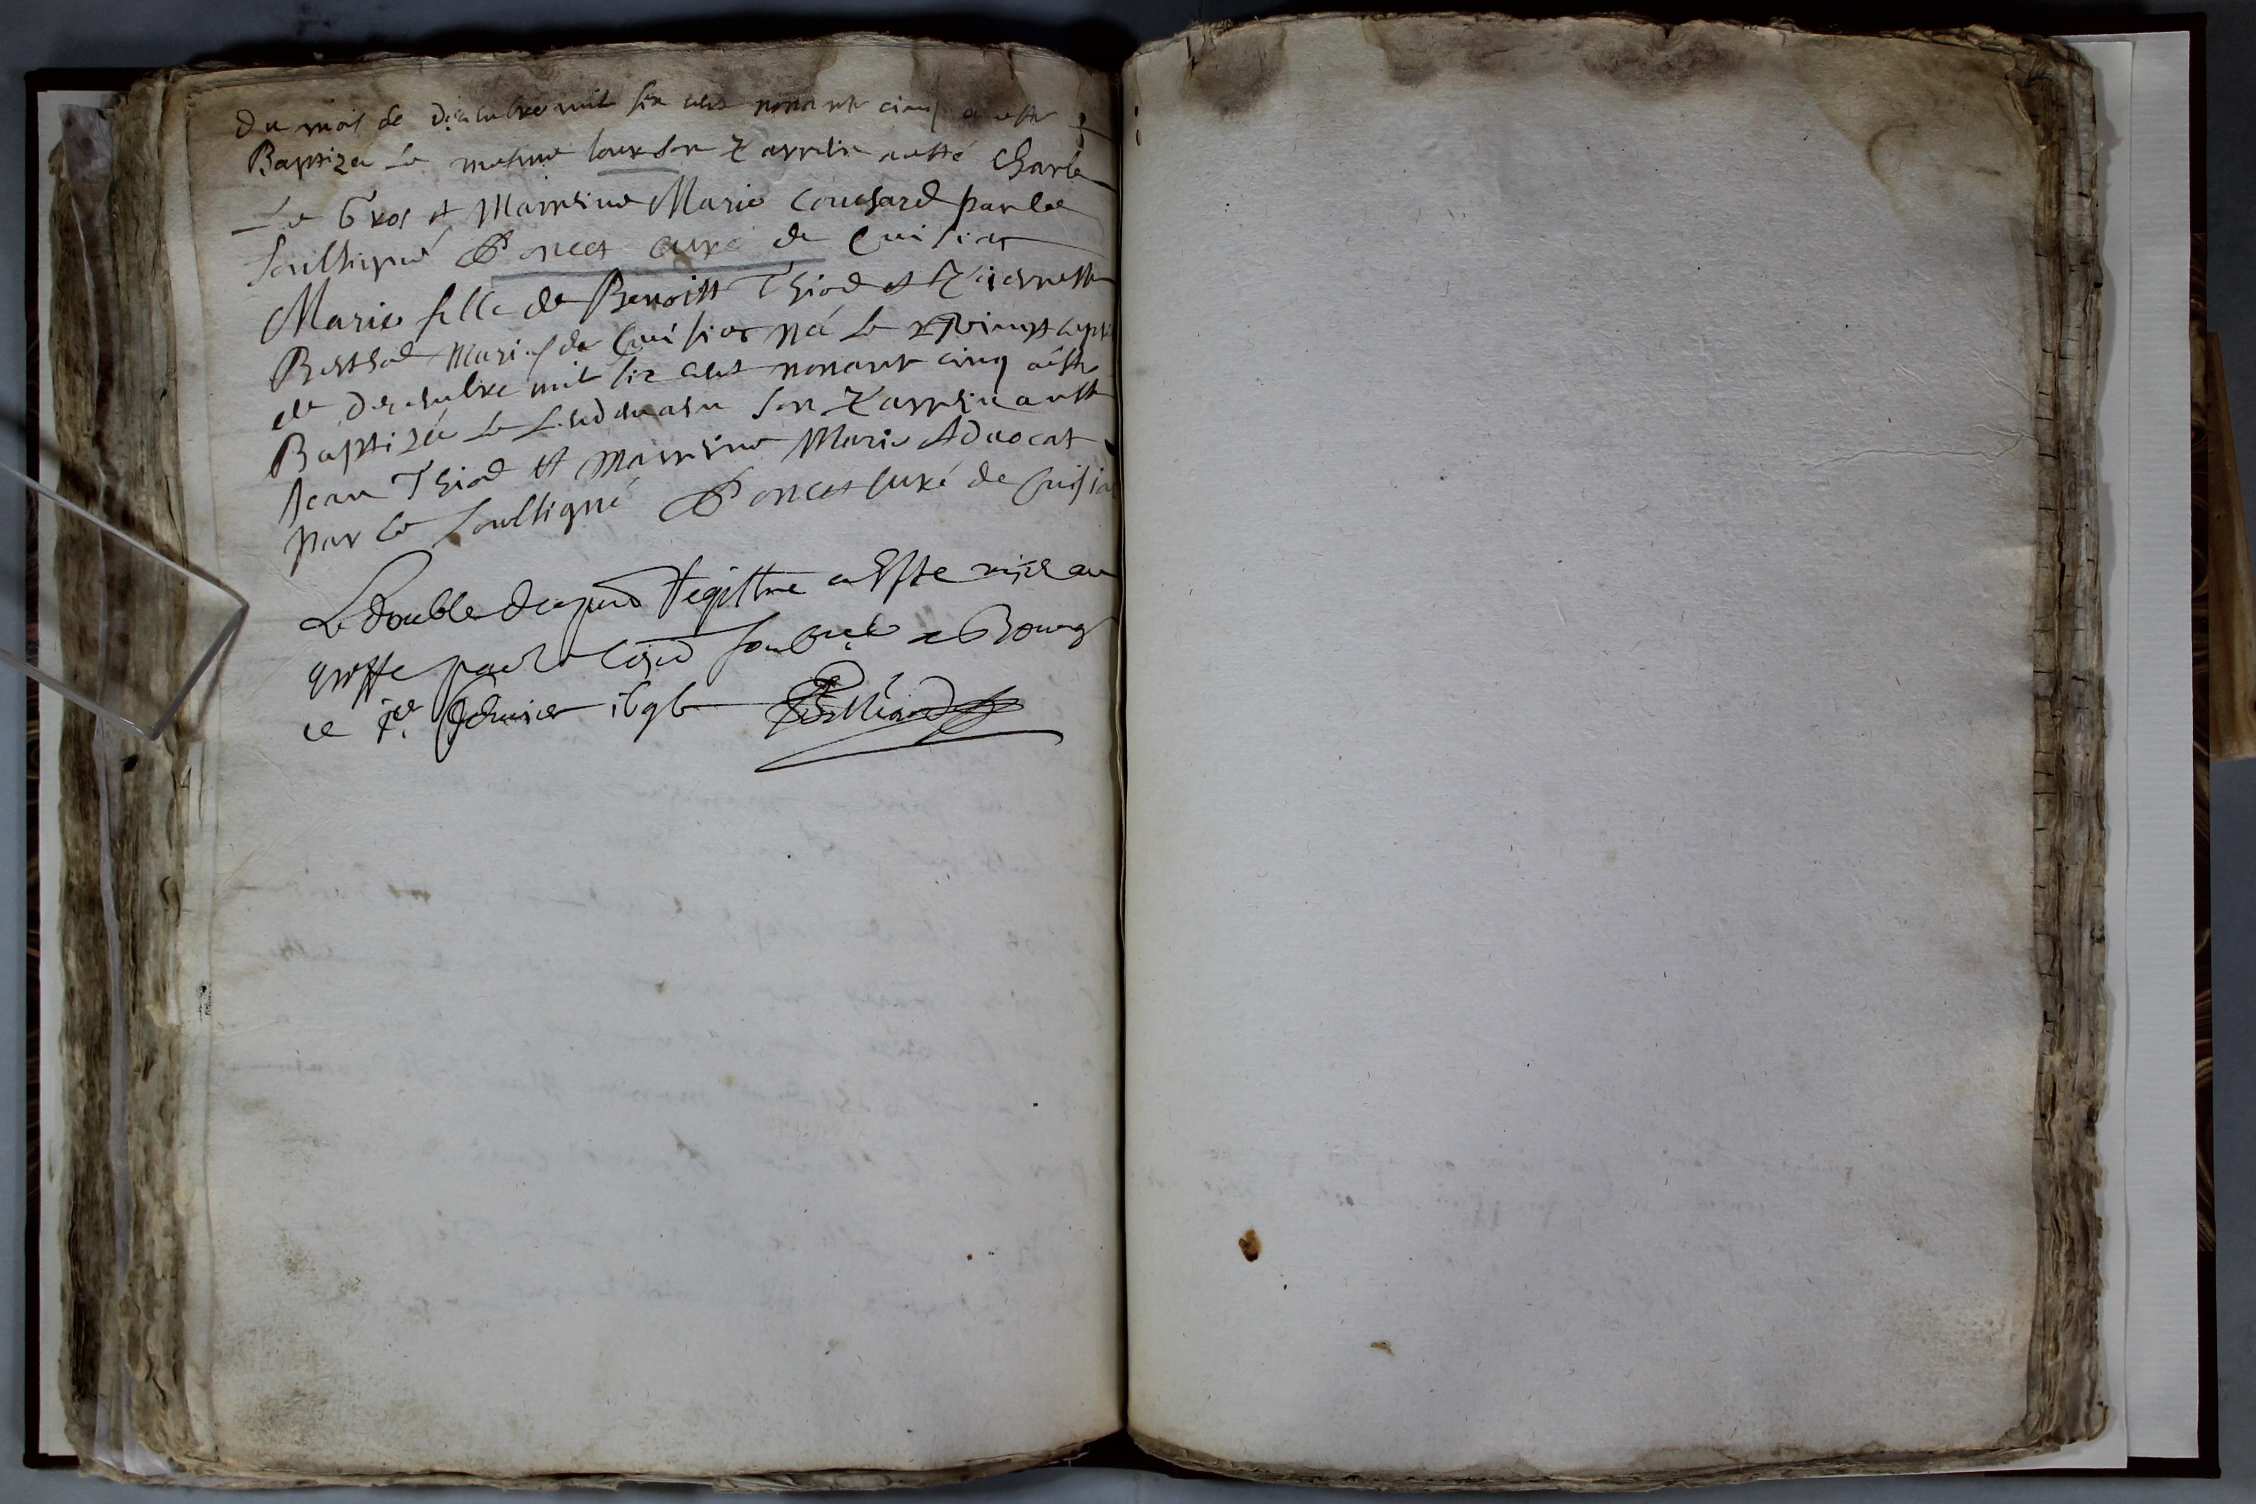 du mois de decembre mil six cens nonante cinq a esté
Baptizé le mesme Jour son parrein a esté Charle
Le Gros et Marreine Marie Couchard par le
soubsigné Poncet curé de Cuisiat
Marie fille de Benoist Thiod et Pierrette
Berthod Mariés de Cuisiat né le vingt sept
de decembre mil six cens nonante cinq a esté
Baptizée le lendemain son parrein a esté
Jean Thiod et marreine Marie Advocat
par le soubsigné Poncet Curé de Cuisiat
Le double du pnt Registre a esté mis au
greffe par le Curé a Bourg
ce pr. febvrier 1696